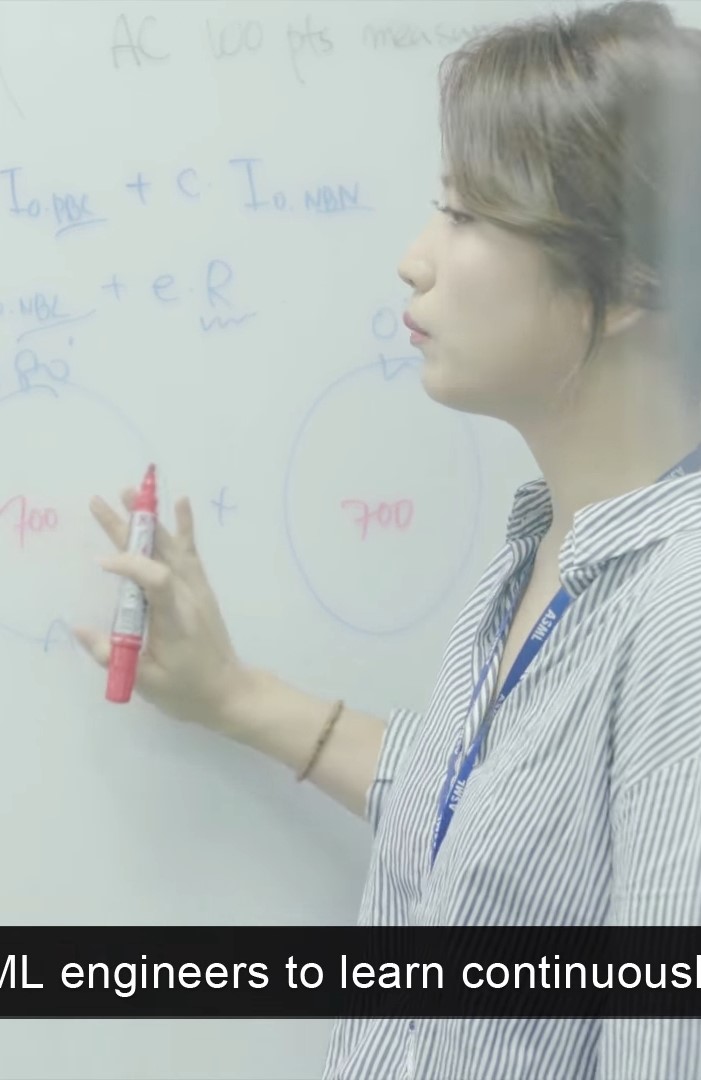 AC 100 pts
I₀.PBC + C. I₀.NBN
.NBC + e.R
700 + 700
ASML
ASML
ML engineers to learn continuousl